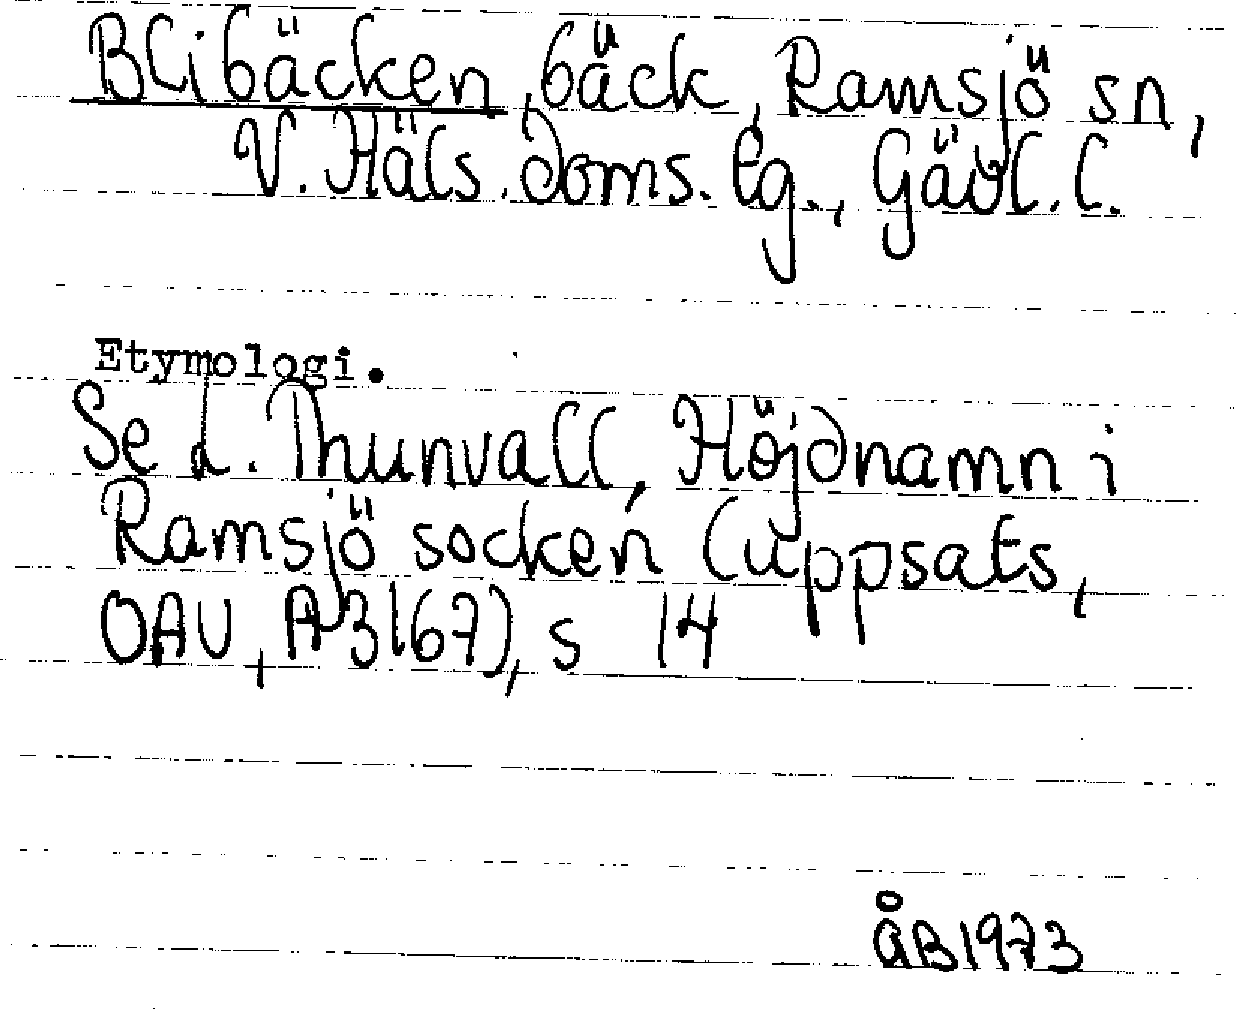 Blibäcken, bäck, Ramsjö sn,
V. Häls. doms. tg., Gävl. l.
Etymologi.
Se L. Thunvall, Höjdnamn i
Ramsjö socken (uppsats,
OAU, A 3167), s 14
åB 1973